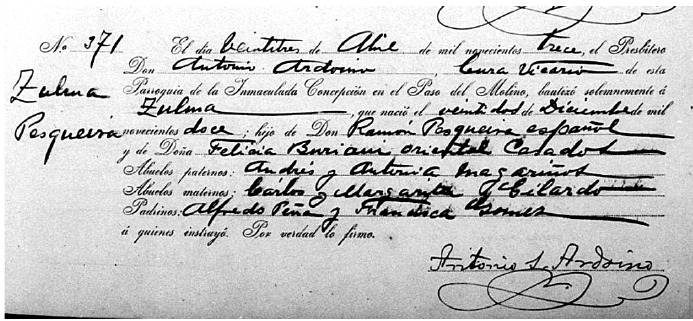 No 371 El día veintitres de Abril de mil novecientos trece, el Presbítero
Don Antonio Ardoino, Cura Vicario de esta
Parroquia de la Inmaculada Concepción en el Paso del Molino, bautizó solemnemente á
Zulma
Pesqueira
Zulma, que nació el veintidos de Diciembre de mil
novecientos doce; hijo de Don Ramon Pesqueira español
y de Doña Felicia Buriani oriental Casados
Abuelos paternos: Andrés y Antonia Magariños
Abuelos maternos: Carlos y Margarita Cilardo
Padrinos: Alfredo Peña y Francisca Gomez
á quienes instruyó. Por verdad lo firmo.
Antonio Ardoino